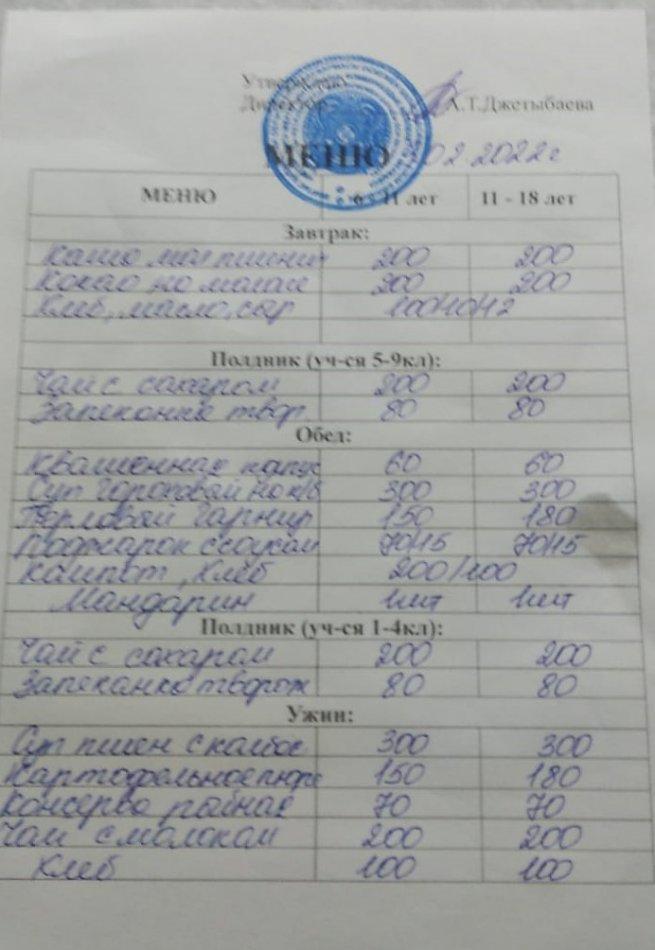 Утверждаю:
Директор А.Т.Джетыбаева
МЕНЮ 02 2022г
МЕНЮ 6 - 11 лет 11 - 18 лет
Завтрак:
Каша мол пшенич 200 200
Какао на молоке 200 200
Хлеб, масло, сыр 100/10/12
Полдник (уч-ся 5-9кл):
Чай с сахаром 200 200
Запеконка твор 80 80
Обед:
Квашенная капус 60 60
Суп гороховый на к/б 300 300
Перловый гарнир 150 180
Поджарок с соусом 70/15 70/15
Кампот, Хлеб 200/100
Мандарин 1шт 1шт
Полдник (уч-ся 1-4кл):
Чай с сахаром 200 200
Запеканка творож 80 80
Ужин:
Суп пшен с колбас 300 300
Картофельное пюре 150 180
Консерва рыбная 70 70
Чай с малоком 200 200
Хлеб 100 100